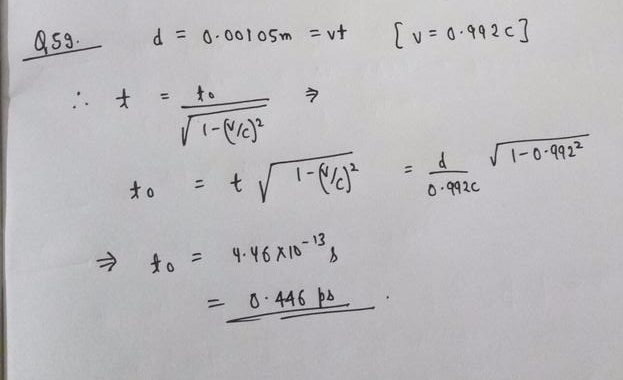 Q59. d = 0.00105m = vt [v = 0.992c]
∴ t = t₀/√(1-(v/c)²) ⇒
t₀ = t √(1-(v/c)²) = d/0.992c √(1-0.992²)
⇒ t₀ = 4.46 x 10⁻¹³ s
= 0.446 ps.